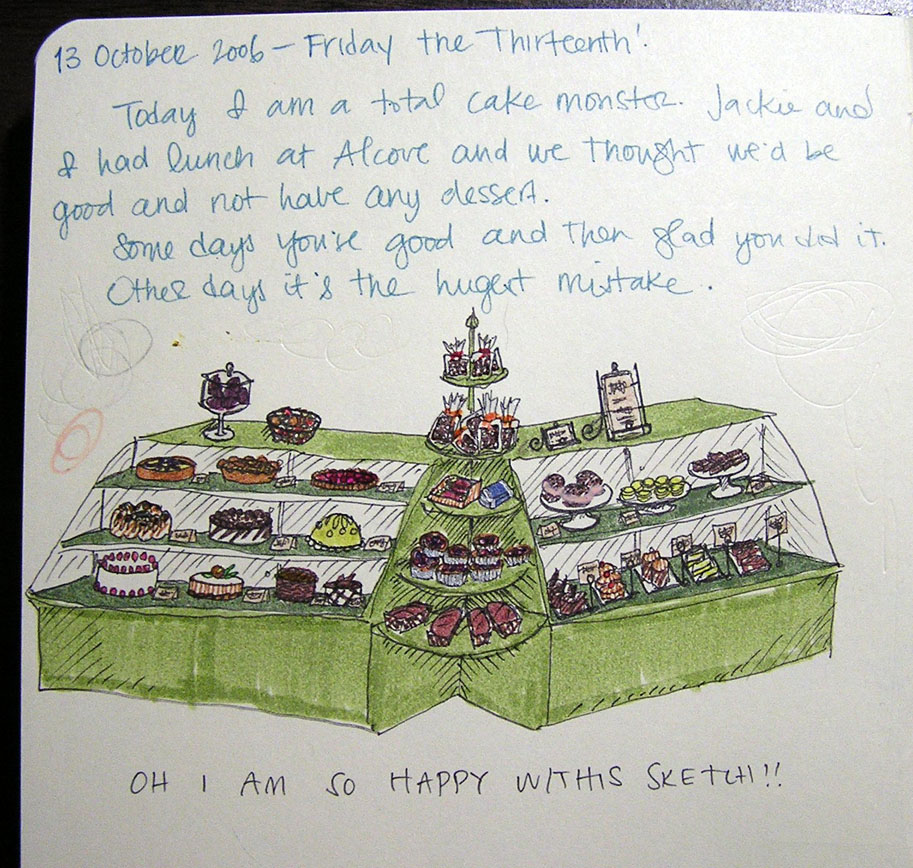 13 October 2006 - Friday the Thirteenth!
Today I am a total cake monster. Jackie and
I had lunch at Alcove and we thought we'd be
good and not have any dessert.
Some days you're good and then glad you did it.
Other days it's the hugest mistake.
OH I AM SO HAPPY W/THIS SKETCH!!